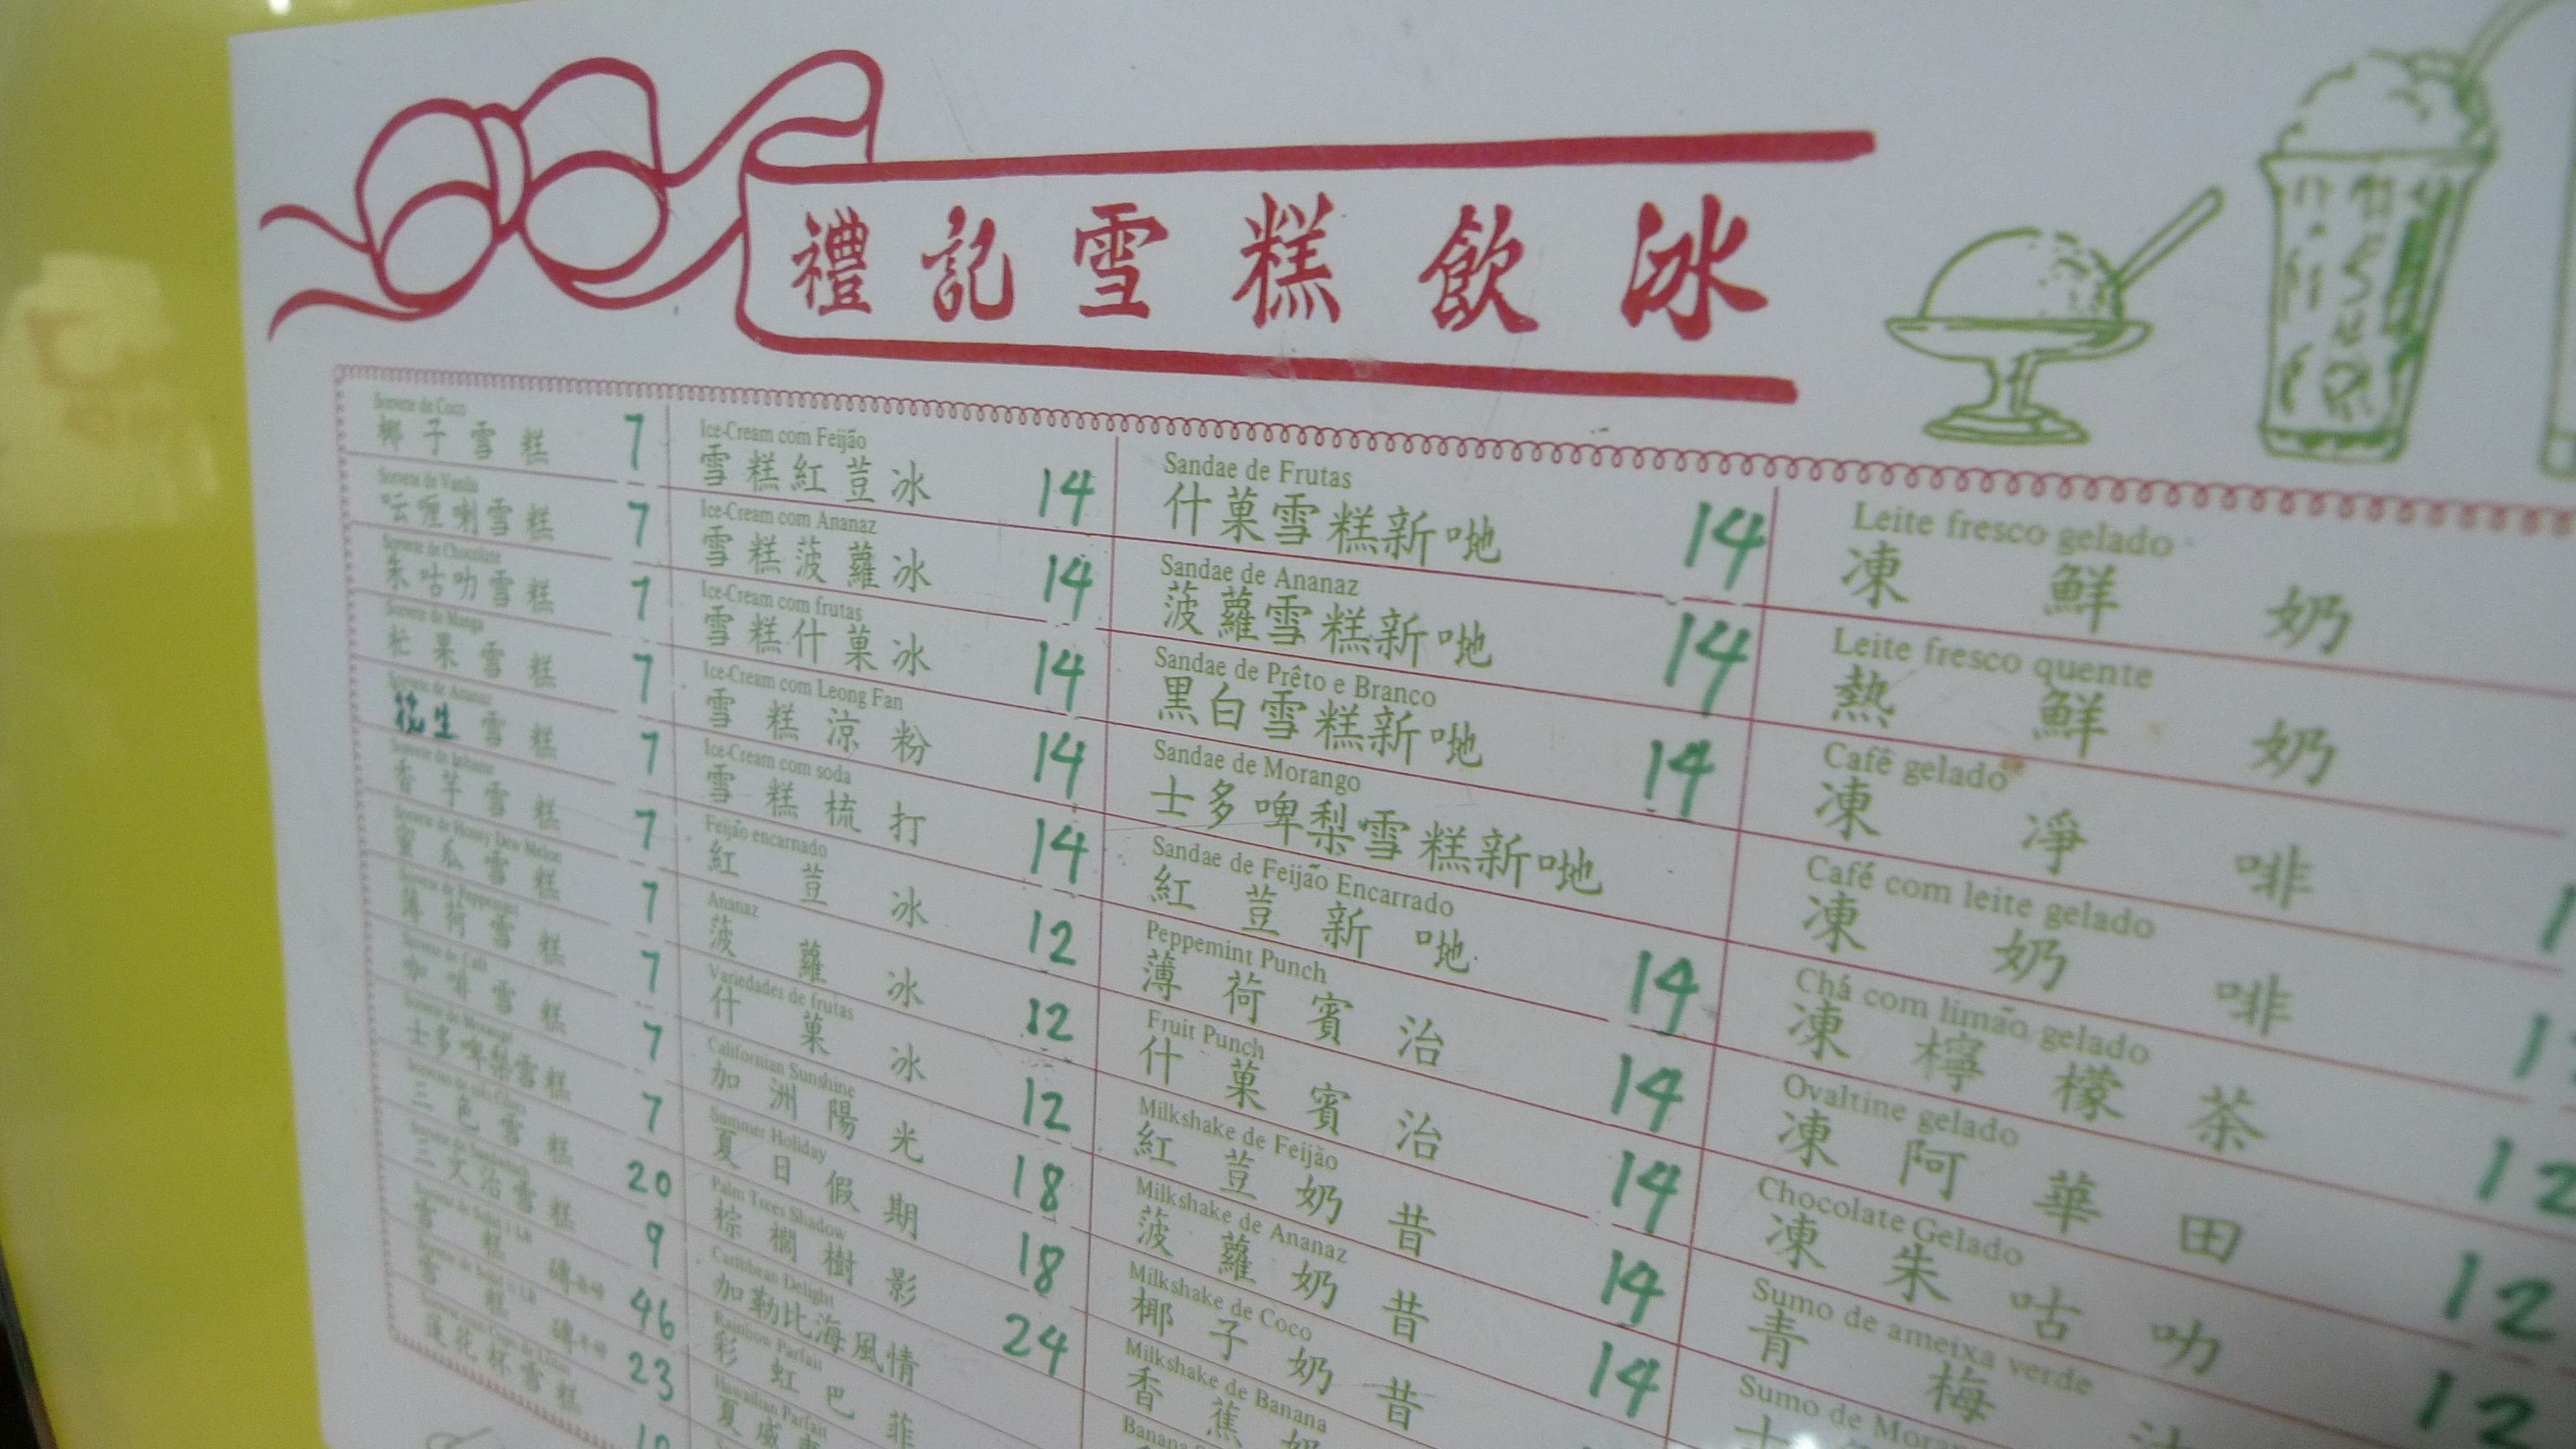 禮記雪糕飲冰
Sorvete de Coco
椰子雪糕 7
Sorvete de Vanila
呍喱喇雪糕 7
Sorvete de Chocolate
朱咕叻雪糕 7
Sorvete de Manga
杧果雪糕 7
Sorvete de Ananaz
花生雪糕 7
Sorvete de Inhame
香芋雪糕 7
Sorvete de Honey Dew Melon
蜜瓜雪糕 7
Sorvete de Peppemint
薄荷雪糕 7
Sorvete de Café
咖啡雪糕 7
Sorvete de Morango
士多啤梨雪糕 7
三色雪糕 20
Sorvete de Sandwich
三文治雪糕 9
雪糕磚 46
雪糕磚 23
蓮花杯雪糕
Ice-Cream com Feijão
雪糕紅荳冰 14
Ice-Cream com Ananaz
雪糕菠蘿冰 14
Ice-Cream com frutas
雪糕什菓冰 14
Ice-Cream com Leong Fan
雪糕涼粉 14
Ice-Cream com soda
雪糕梳打 14
Feijão encarnado
紅荳冰 12
Ananaz
菠蘿冰 12
Variedades de frutas
什菓冰 12
Californian Sunshine
加洲陽光 18
Summer Holiday
夏日假期 18
Palm Trees Shadow
棕櫚樹影 24
Caribbean Delight
加勒比海風情
Rainbow Parfait
彩虹巴菲
Hawaiian Parfait
夏威
Sandae de Frutas
什菓雪糕新哋 14
Sandae de Ananaz
菠蘿雪糕新哋 14
Sandae de Prêto e Branco
黑白雪糕新哋 14
Sandae de Morango
士多啤梨雪糕新哋
Sandae de Feijão Encarrado
紅荳新哋 14
Peppemint Punch
薄荷賓治 14
Fruit Punch
什菓賓治 14
Milkshake de Feijão
紅荳奶昔 14
Milkshake de Ananaz
菠蘿奶昔 14
Milkshake de Coco
椰子奶昔
Milkshake de Banana
香蕉奶
Banana
Leite fresco gelado
凍鮮奶
Leite fresco quente
熱鮮奶
Café gelado
凍淨啡
Café com leite gelado
凍奶啡
Chá com limão gelado
凍檸檬茶 12
Ovaltine gelado
凍阿華田 12
Chocolate Gelado
凍朱咕叻 12
Sumo de ameixa verde
青梅
Sumo de Moran